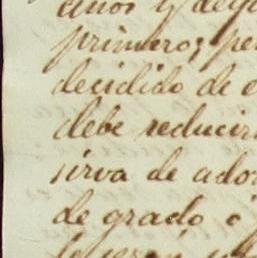 primero; pe
decidido de e
debe reducir
sirva de ador
de grado ó